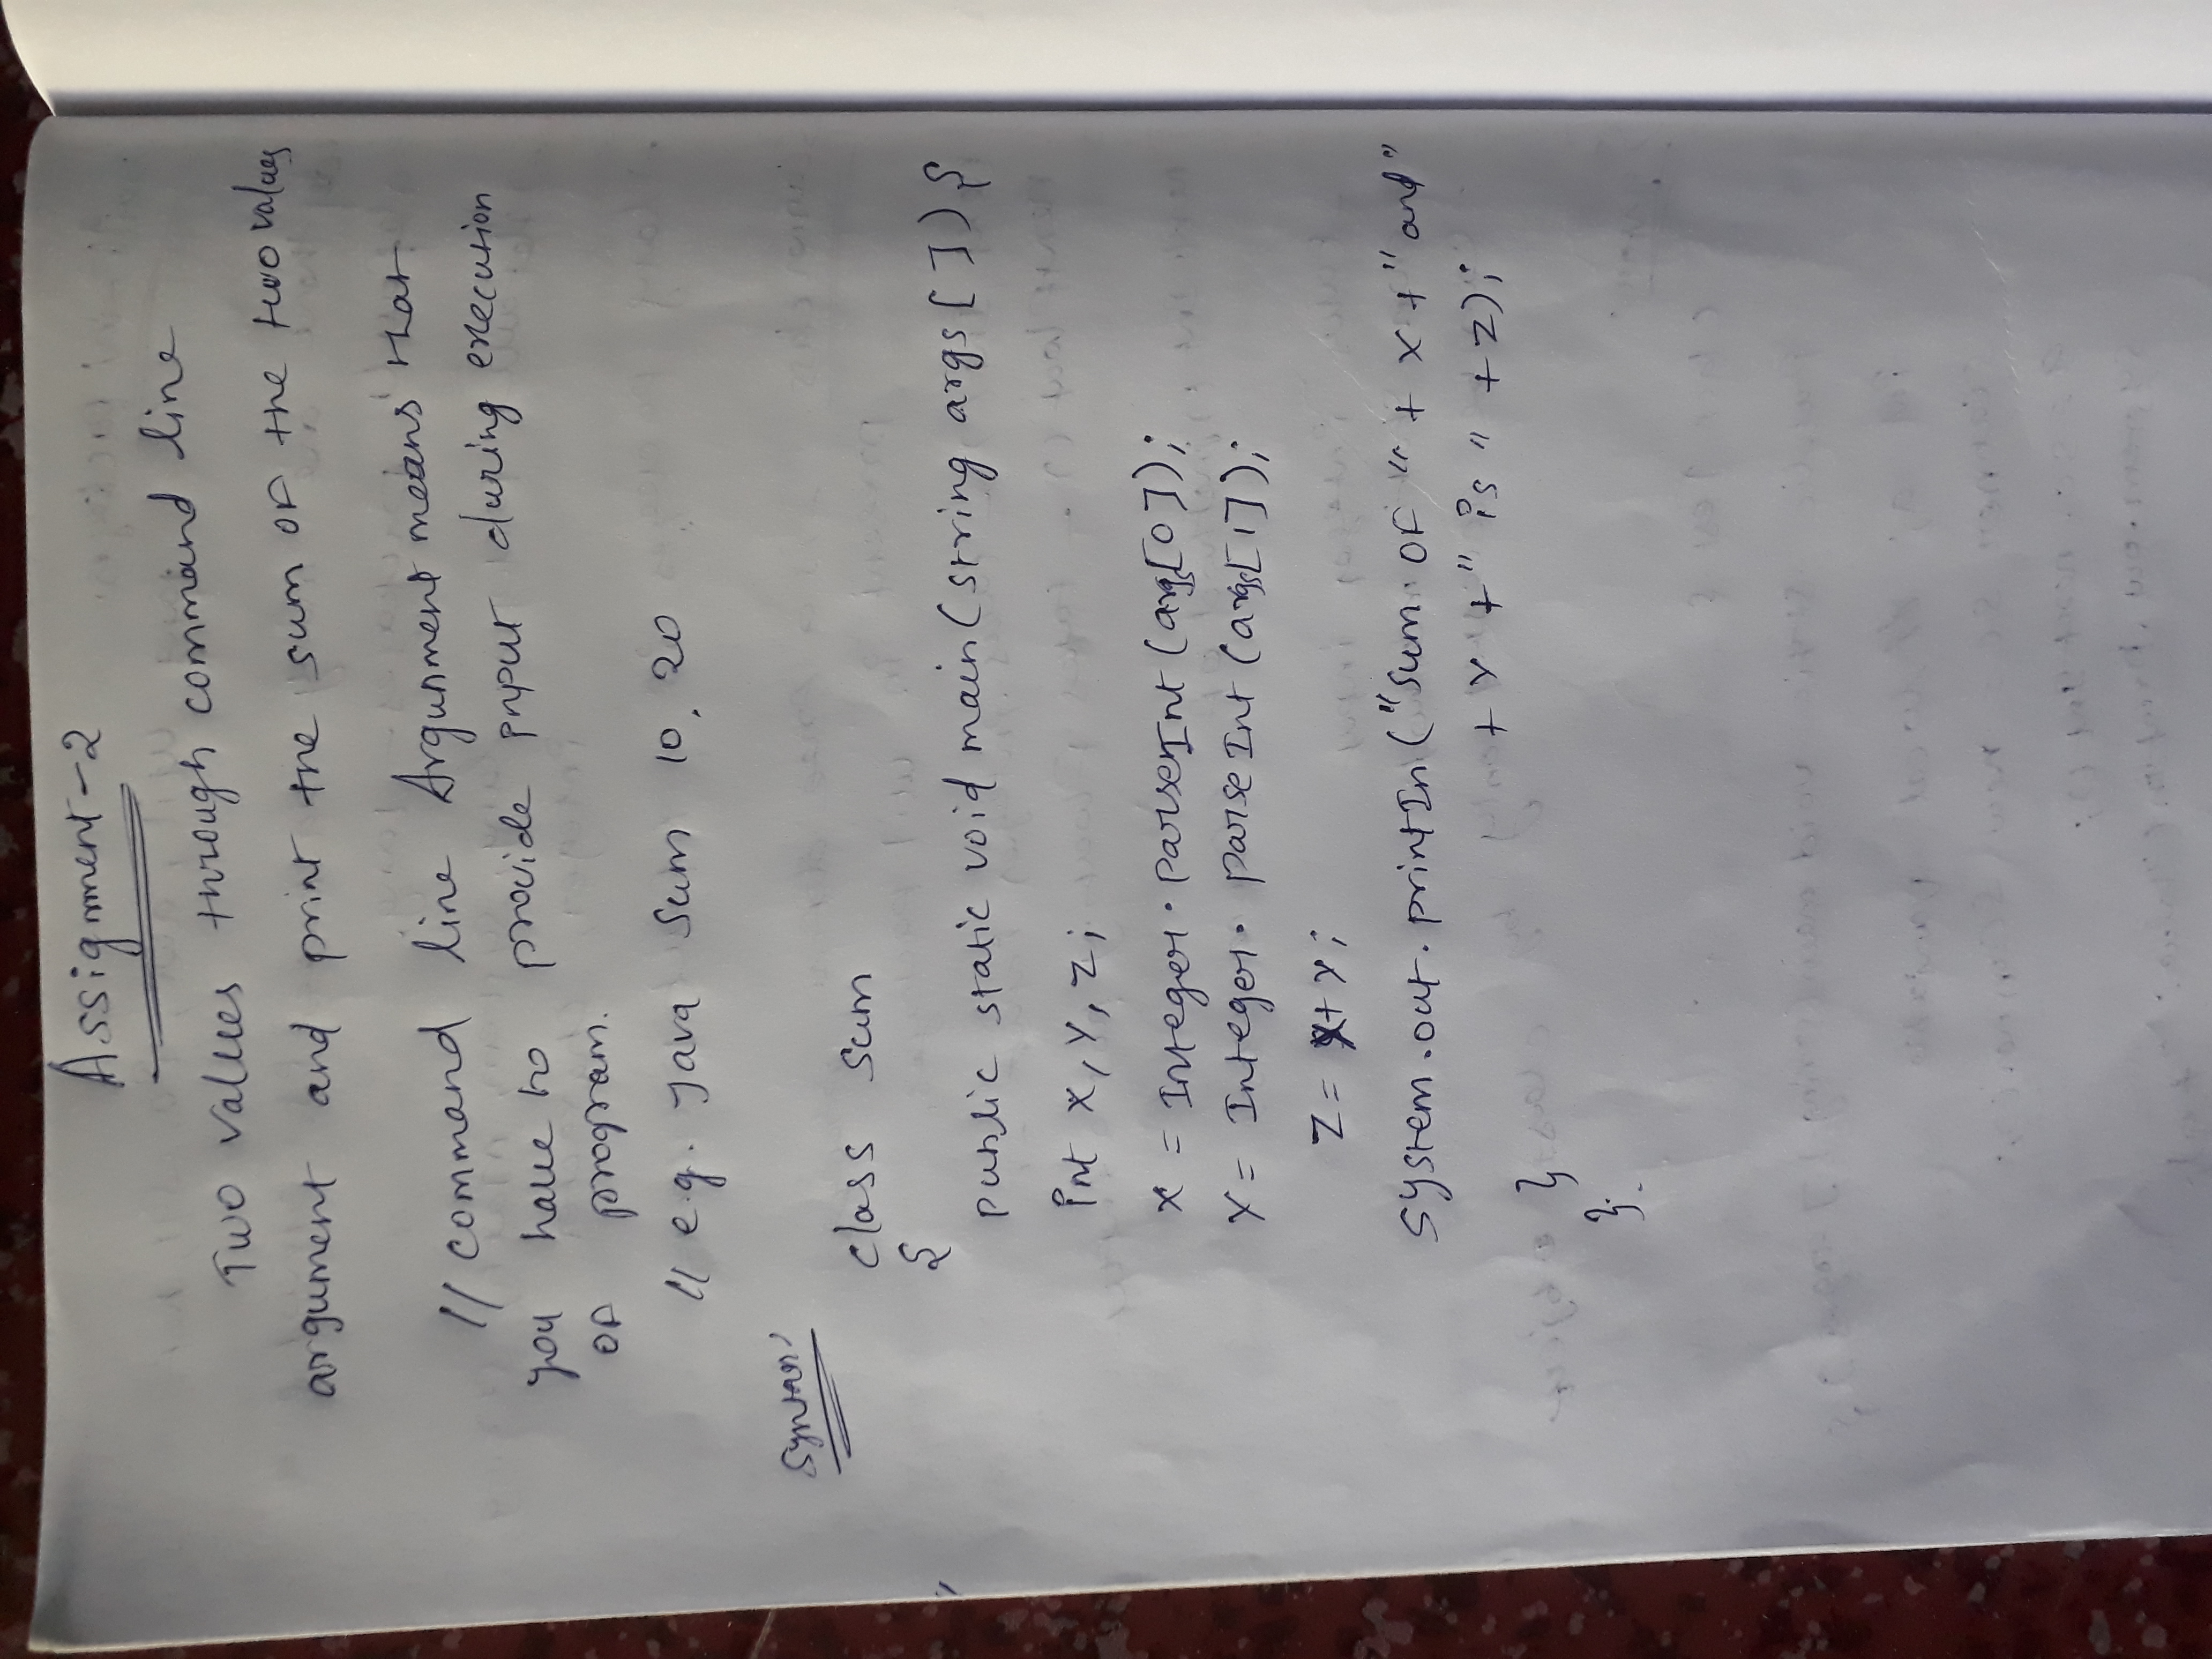 Assignment-2
Two values through command line
argument and print the sum of the two values
// command line Argunment means that
you have to provide input during execution
of program.
// e.g. Java Sum 10, 20
Syntax:
class Sum
{
public static void main(string args[]){
int x, y, z;
x = Integer.parseInt(args[0]);
y = Integer.parseInt(args[1]);
z = x+y;
System.out.printIn("Sum of " + x + " and"
+ y + " is " + z);
}
}.